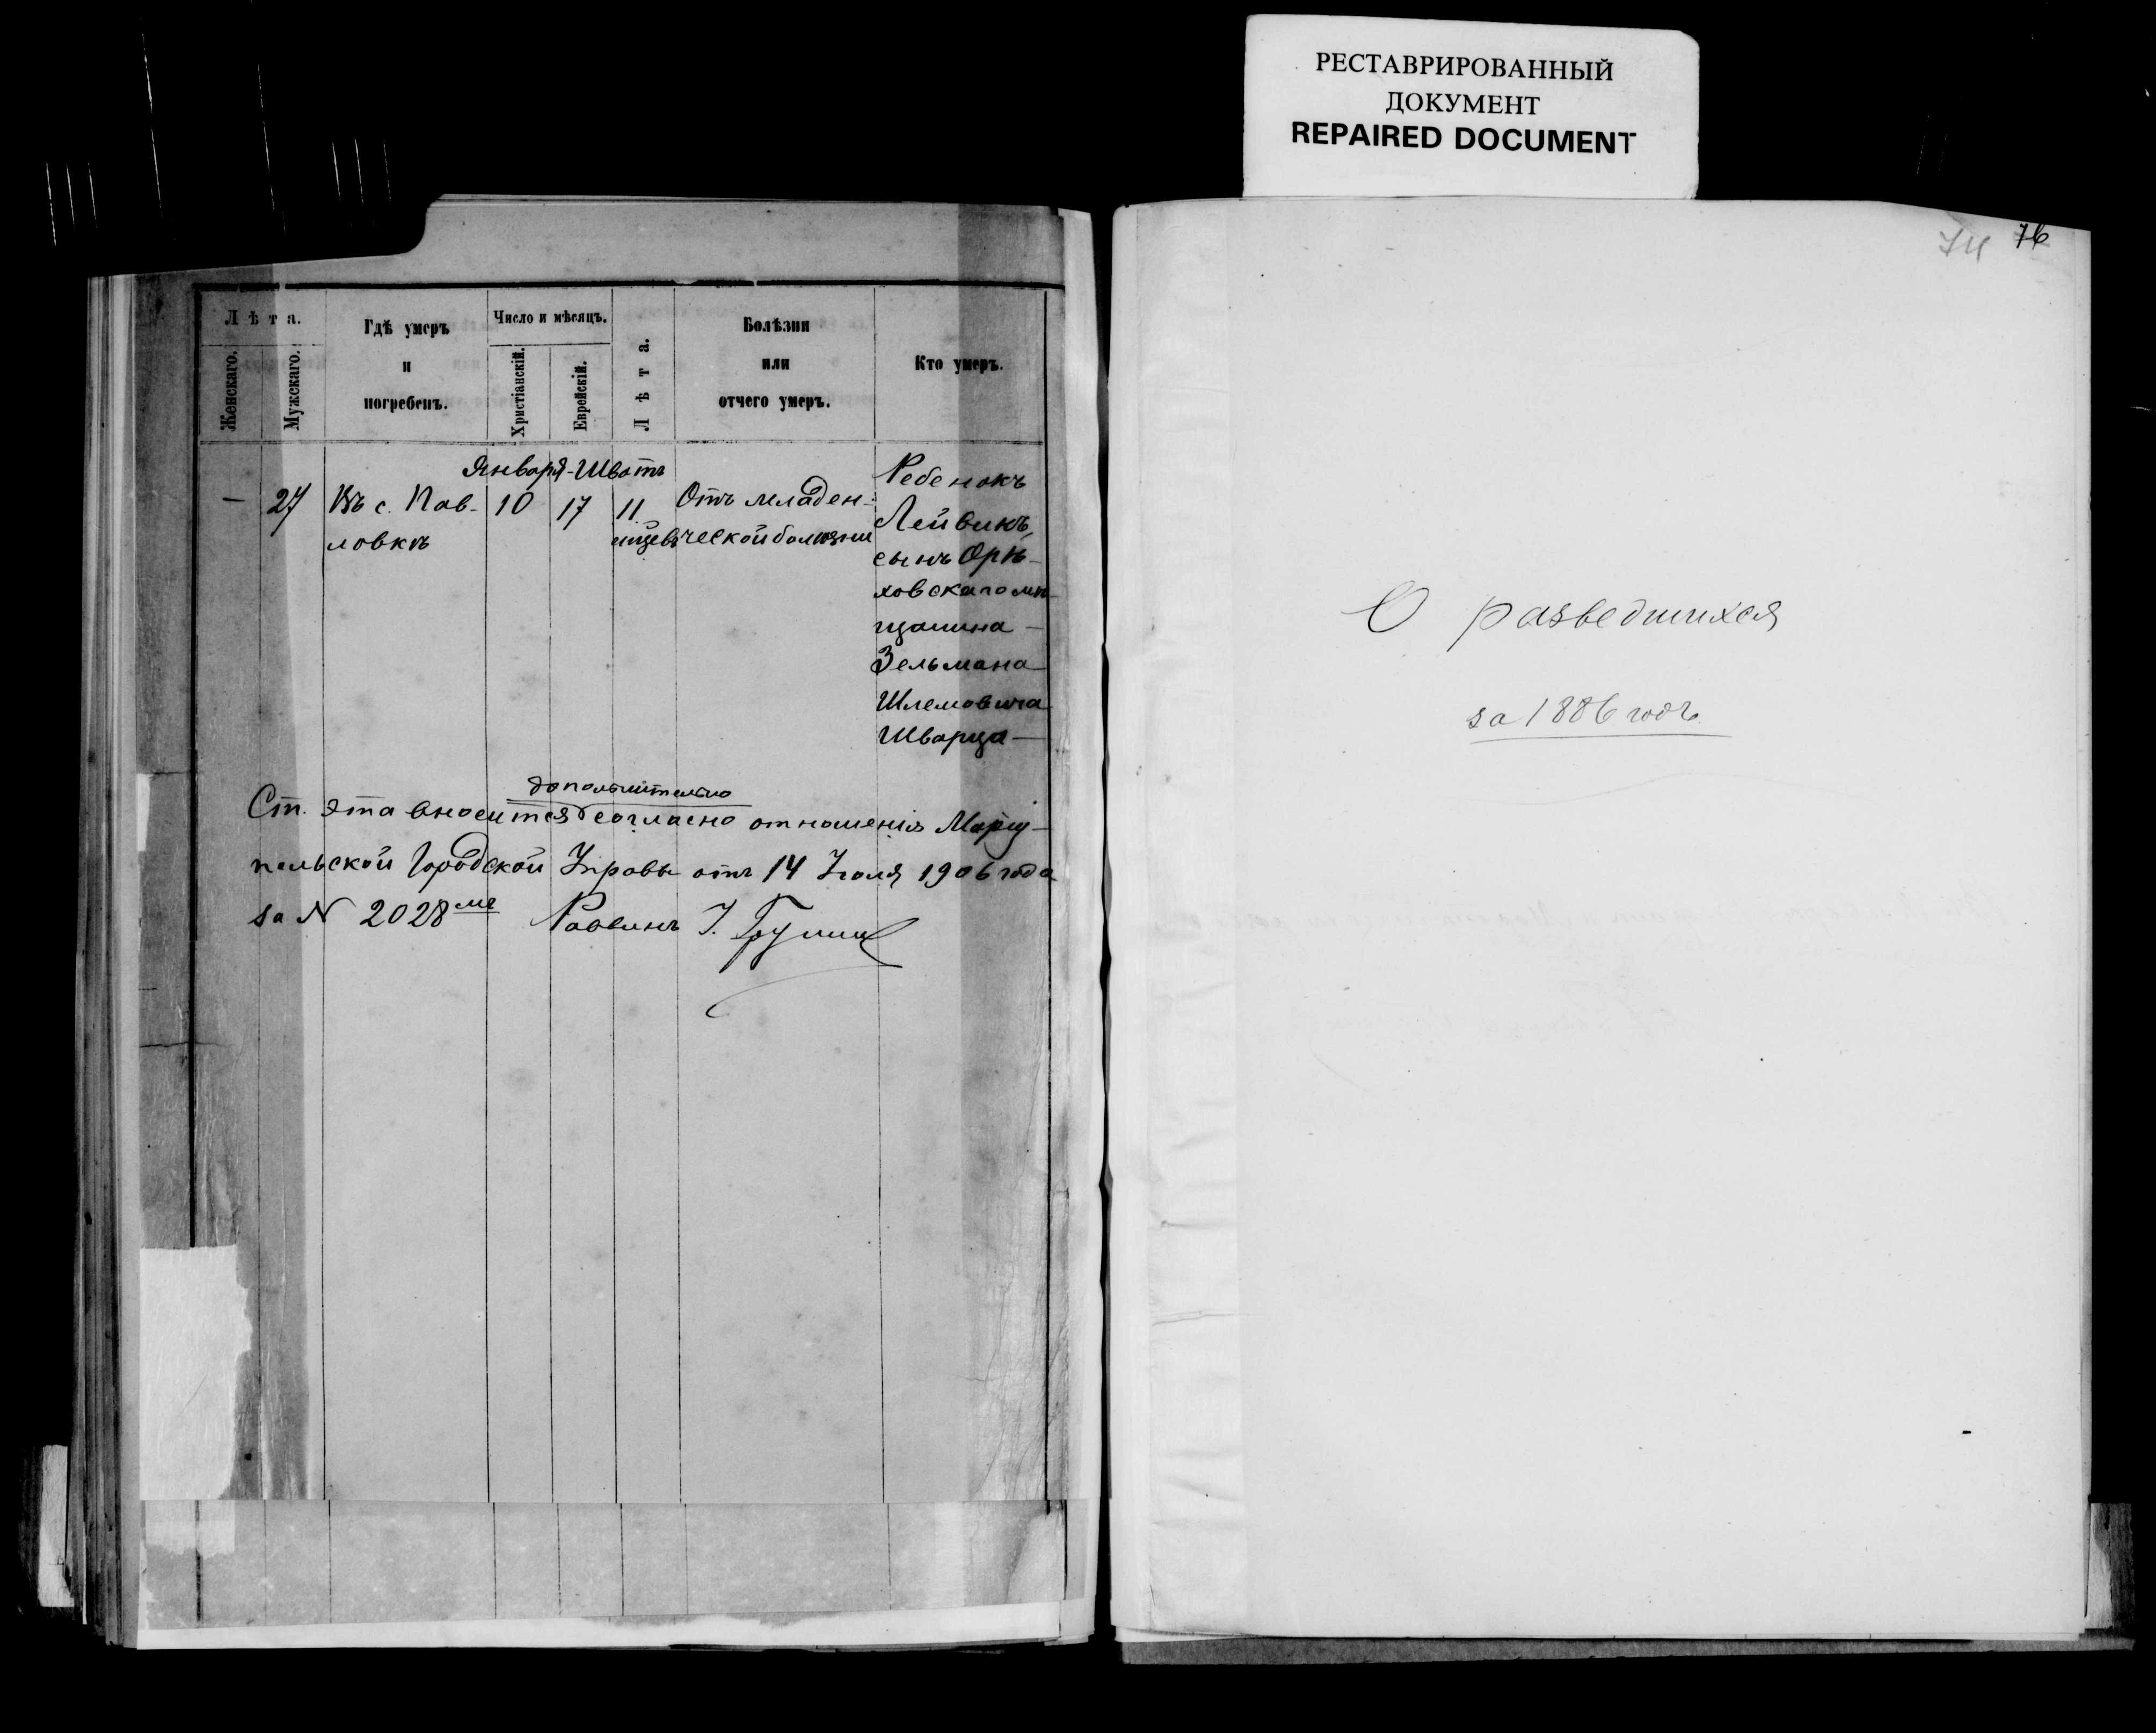 РЕСТАВРИРОВАННЫЙ
ДОКУМЕНТ
REPAIRED DOCUMENT
Лѣта.
Женскаго.
Мужскаго.
Гдѣ умеръ
и
погребенъ.
Число и мѣсяцъ.
Христіанскій.
Еврейскій.
Лѣта.
Болѣзни
или
отчего умеръ.
Кто умеръ.
Января-Шватъ
— 27 Въ с. Пав-
ловкѣ
10 17 11
Отъ младен-
ческой болѣзни
Ребенокъ
Лейвикъ,
сынъ Орѣ-
ховскаго мѣ-
щанина —
Зельмана
Шлемовича
Шварца —
дополнительно
Ст. эта вносится согласно отношенія Маріу-
польской Городской Управы отъ 14 Іюля 1906 года
за № 2028 Раввинъ
74 76
О разведшихся
за 1886 годъ